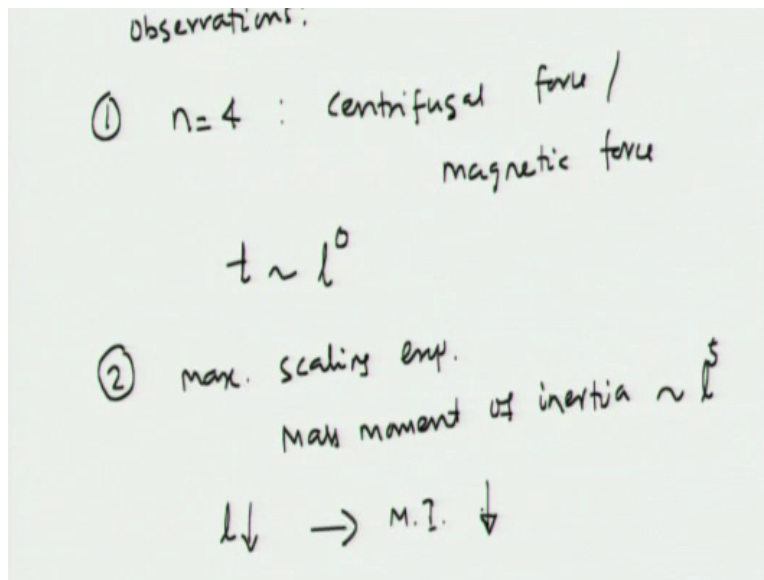 observations:
① n=4 : centrifugal force /
magnetic force
t ~ l⁰
② max. scaling exp.
Mass moment of inertia ~ l⁵
l↓ → M.I. ↓